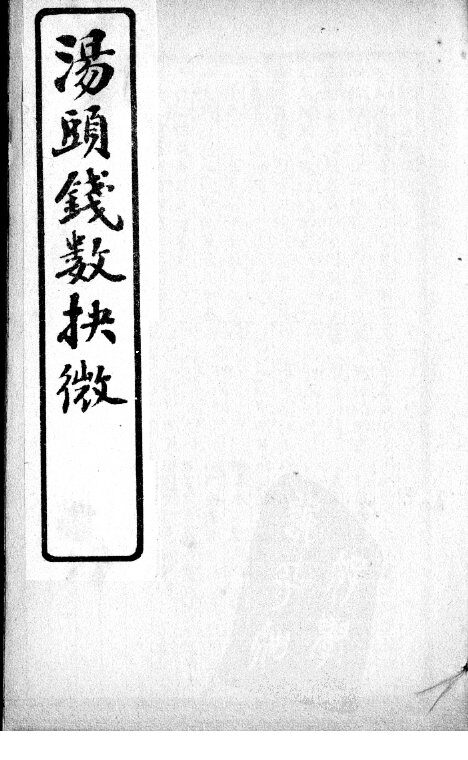 湯頭錢数抉微